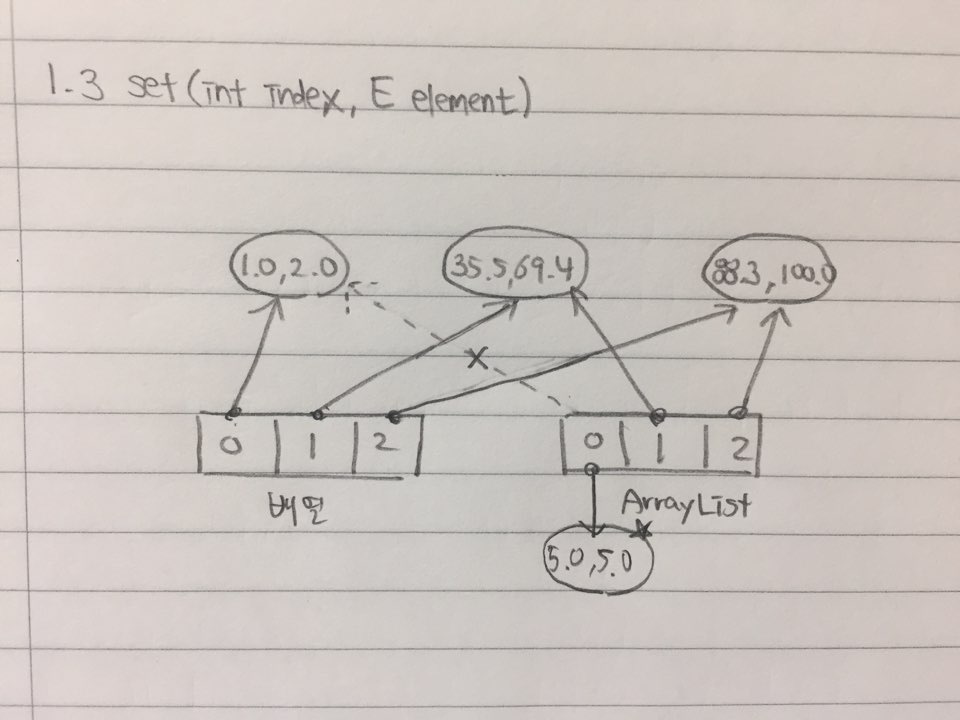 1.3 set(int index, E element)
1.0, 2.0
35.5, 69.4
88.3, 100.0
X
0 1 2
0 1 2
배열
ArrayList
5.0, 5.0